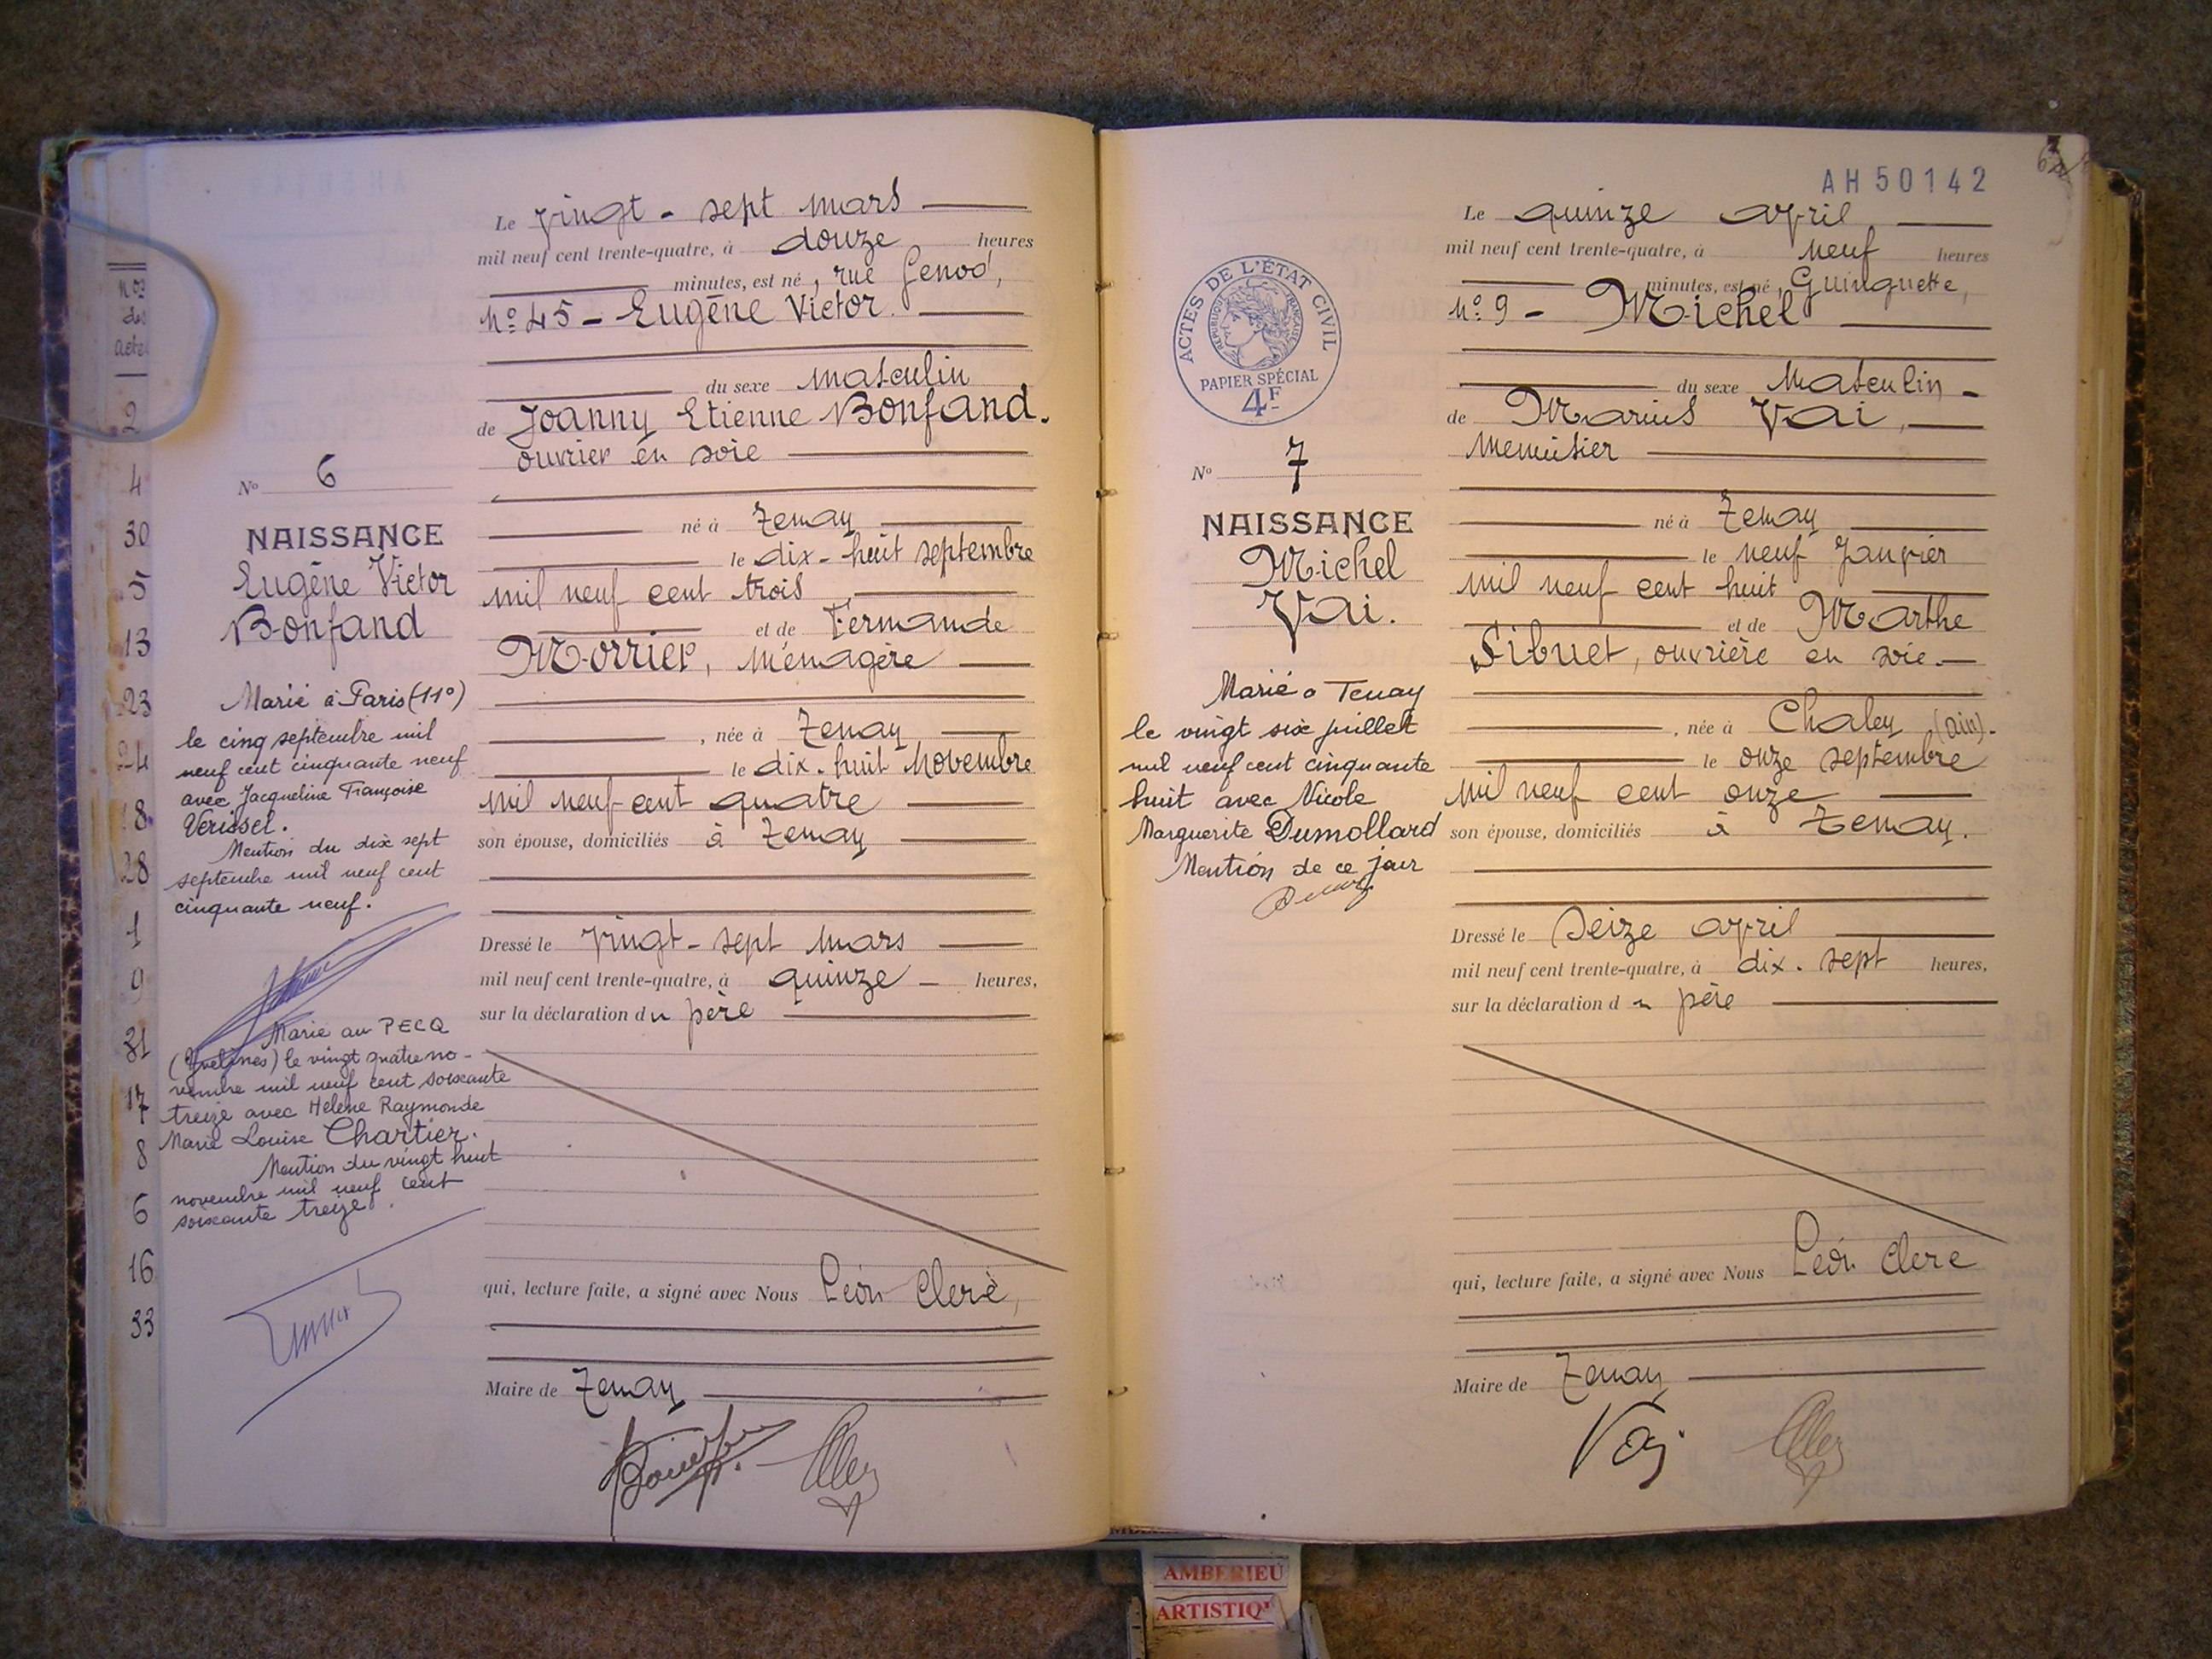 Nos
des
actes
2
4
30
5
13
23
24
18
28
1
9
31
17
8
6
16
33
No 6
NAISSANCE
Eugène Victor
Bonfand
Marié à Paris (11e)
le cinq septembre mil
neuf cent cinquante neuf
avec Jacqueline Françoise
Verissel.
Mention du dix sept
septembre mil neuf cent
cinquante neuf.
Marié au PECQ
(Yvelines) le vingt quatre no-
vembre mil neuf cent soixante
treize avec Hélène Raymonde
Marie Louise Chartier.
Mention du vingt huit
novembre mil neuf cent
soixante treize.
Le vingt-sept mars
mil neuf cent trente-quatre, à douze heures
minutes, est né, rue Genod,
No 45 - Eugène Victor.
du sexe masculin
de Joanny Etienne Bonfand.
ouvrier en soie
né à Tenay
le dix-huit septembre
mil neuf cent trois
et de Fernande
Morrier, ménagère
, née à Tenay
le dix-huit novembre
mil neuf cent quatre
son épouse, domiciliés à Tenay
Dressé le vingt-sept mars
mil neuf cent trente-quatre, à quinze heures,
sur la déclaration du père
qui, lecture faite, a signé avec Nous Léon Clerc,
Maire de Tenay
AH50142
ACTES DE L'ÉTAT CIVIL
RÉPUBLIQUE FRANÇAISE
PAPIER SPÉCIAL
4F
No 7
NAISSANCE
Michel
Vai.
Marié à Tenay
le vingt six juillet
mil neuf cent cinquante
huit avec Nicole
Marguerite Dumollard
Mention de ce jour
Le quinze avril
mil neuf cent trente-quatre, à neuf heures
minutes, est né, Guinguette,
No 9 - Michel
du sexe Masculin
de Marius Vai,
Menuisier
né à Tenay
le neuf Janvier
mil neuf cent huit
et de Marthe
Sibuet, ouvrière en soie.
, née à Chaley (Ain).
le onze septembre
mil neuf cent onze
son épouse, domiciliés à Tenay.
Dressé le seize avril
mil neuf cent trente-quatre, à dix-sept heures,
sur la déclaration du père
qui, lecture faite, a signé avec Nous Léon Clerc
Maire de Tenay
Vai
AMBERIEU
ARTISTIQ